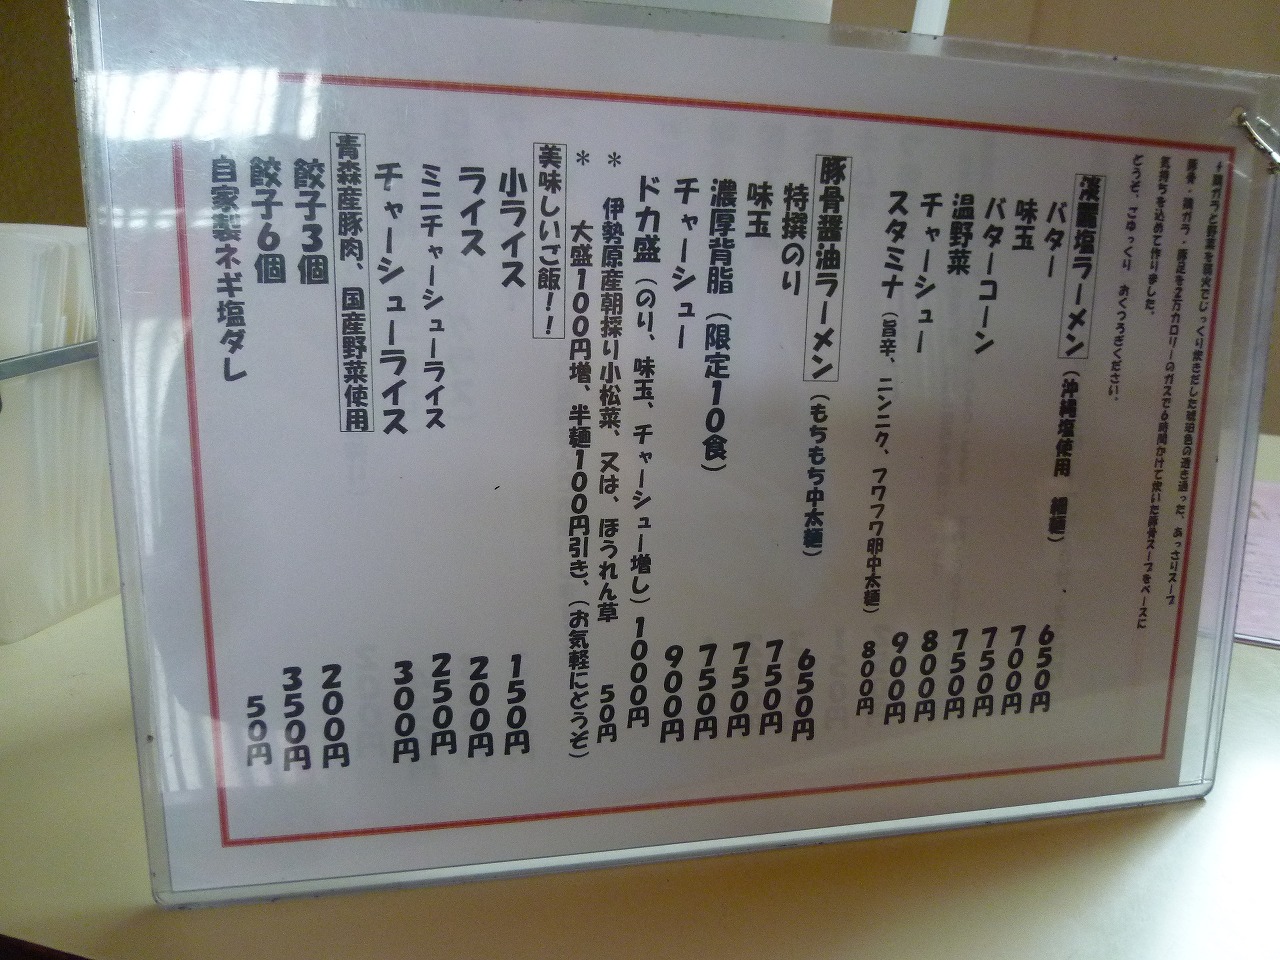 ・鶏ガラと野菜を弱火でじっくり炊きだした琥珀色の透き通った、あっさりスープ
豚骨・鶏ガラ・豚足を2万カロリーのガスで6時間かけて炊いた豚骨スープをベースに
気持ちを込めて作りました。
どうぞ、ごゆっくり おくつろぎください。
淡麗塩ラーメン (沖縄塩使用 細麺) 650円
バター 700円
味玉 750円
バターコーン 750円
温野菜 800円
チャーシュー 900円
スタミナ (旨辛、ニンニク、フワフワ卵中太麺) 800円
豚骨醤油ラーメン (もちもち中太麺) 650円
特撰のり 750円
味玉 750円
濃厚背脂 (限定10食) 750円
チャーシュー 900円
ドカ盛 (のり、味玉、チャーシュー増し) 1000円
* 伊勢原産朝採り小松菜、又は、ほうれん草 50円
* 大盛100円増、半麺100円引き、(お気軽にどうぞ)
美味しいご飯!!
小ライス 150円
ライス 200円
ミニチャーシューライス 250円
チャーシューライス 300円
青森産豚肉、国産野菜使用
餃子3個 200円
餃子6個 350円
自家製ネギ塩ダレ 50円